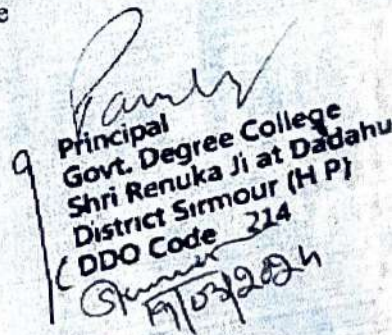 e
Principal
Govt. Degree College
Shri Renuka Ji at Dadahu
District Sirmour (H P)
DDO Code 214